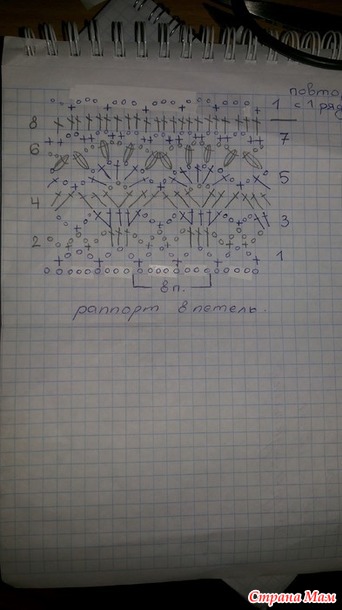 повто
1 с 1 ряд
8
7
6
5
4
3
2
1
8 п.
раппорт 8 петель.
Страна Мам